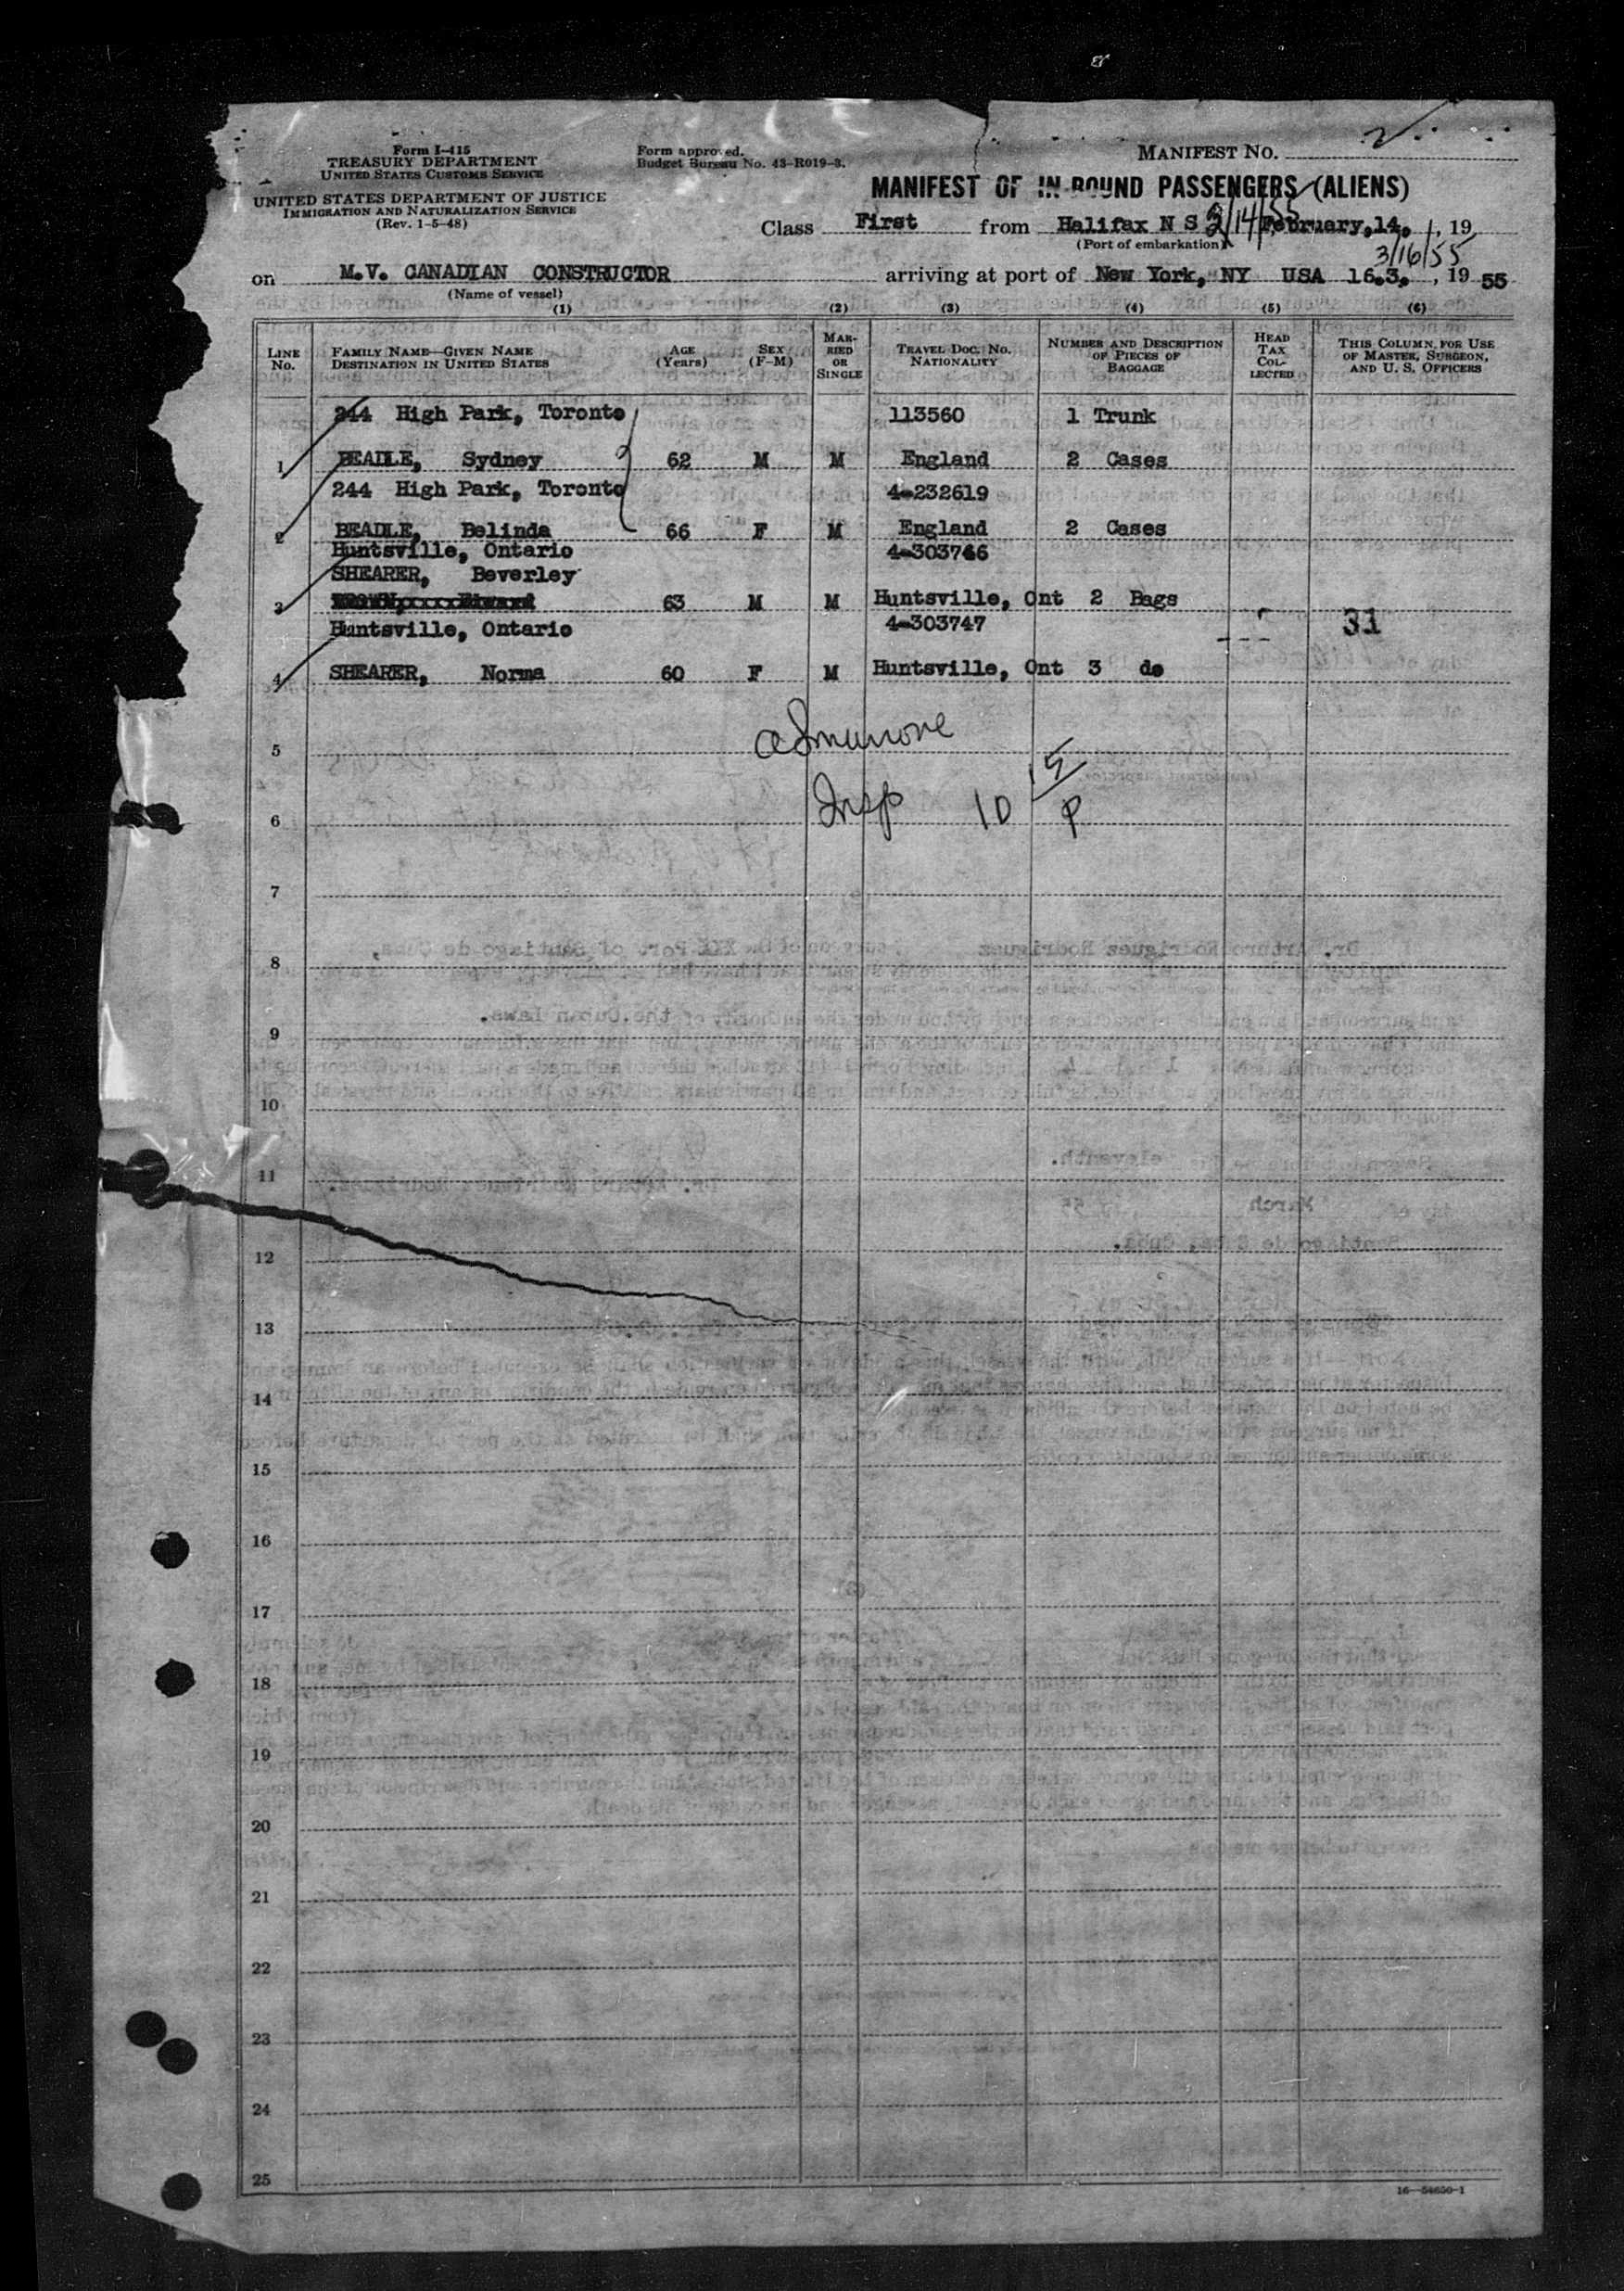 2
Form I-415
TREASURY DEPARTMENT
UNITED STATES CUSTOMS SERVICE
UNITED STATES DEPARTMENT OF JUSTICE
IMMIGRATION AND NATURALIZATION SERVICE
(Rev. 1-5-48)
Form approved.
Budget Bureau No. 43-R019-3.
MANIFEST No.
MANIFEST OF IN-BOUND PASSENGERS (ALIENS)
Class First from Halifax N S 2/14/55 February, 14, , 19
(Port of embarkation)
3/16/55
on M.V. CANADIAN CONSTRUCTOR arriving at port of New York, NY USA 16.3. , 19 55
(Name of vessel)
(1) (2) (3) (4) (5) (6)
LINE No. FAMILY NAME—GIVEN NAME DESTINATION IN UNITED STATES AGE (Years) SEX (F-M) MARRIED OR SINGLE TRAVEL DOC. No. NATIONALITY NUMBER AND DESCRIPTION OF PIECES OF BAGGAGE HEAD TAX COLLECTED THIS COLUMN FOR USE OF MASTER, SURGEON, AND U. S. OFFICERS
244 High Park, Toronto 113560 1 Trunk
1 BEADLE, Sydney 62 M M England 2 Cases
244 High Park, Toronto 4-232619
2 BEADLE, Belinda 66 F M England 2 Cases
Huntsville, Ontario 4-303746
SHEARER, Beverley
3 63 M M Huntsville, Ont 2 Bags
Huntsville, Ontario 4-303747 31
4 SHEARER, Norma 60 F M Huntsville, Ont 3 do
5
Insp 10 15/P
6
7
8
9
10
11
12
13
14
15
16
17
18
19
20
21
22
23
24
25
16—54650-1